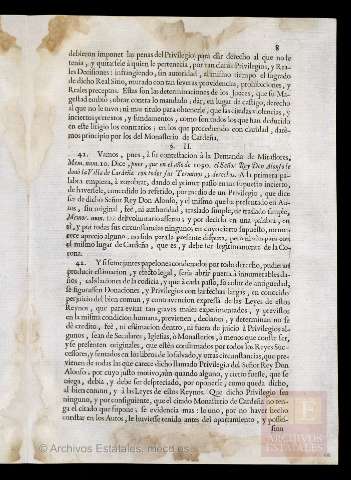 8
debieron imponer las penas del Privilegio; para dàr derecho al que no le
tenia, y quitarsele à quien le pertenecia, por tan claros Privilegios, y Rea-
les Decisiones: infringiendo, sin autoridad, al mismo tiempo el sagrado
de dicho Real Sitio, murado con tan severas providencias, prohibiciones, y
Reales preceptos. Estas son las determinaciones de los Jueces, que su Ma-
gestad embiò; obrar contra lo mandado; dàr, en lugar de castigo, derecho
al que no le tuvo; ni mas titulo para obtenerle, que las ciegas violencias, y
inciertos pretextos, y fundamentos, como son todos los que han deducido
en este litigio los contrarios; en los que procediendo con claridad, darè-
mos principio por los del Monasterio de Cardeña.
§. II.
41. Vamos, pues, à su contestacion à la Demanda de Miraflores,
Mem. num. 10. Dice, pues, que en el año de 1090. el Señor Rey Don Alonso le
donò la Villa de Cardeña con todos sus Terminos, y derechos. A la primera pa-
labra empieza, à zozobrar, dando el primer passo en un supuesto incierto,
de haversele concedido lo referido, por medio de un Privilegio, que dice
ser de dicho Señor Rey Don Alonso, y el mismo que ha presentado en Au-
tos, sin original, fee, ni authoridad, traslado simple, de traslado simple,
Memor. num. 120. defectuoso, y por decirlo en una palabra, en
sì, y por todas sus circunstancias ninguno; en cuyo cierto supuesto, no me-
rece aprecio alguno, no solo para la presente disputa, pero ni aun para con
el mismo lugar de Cardeña, que es, y debe ser legitimamente de la Co-
rona.
42. Y si semejantes papelones condenados por todo derecho, pudiessen
producir estimacion, y efecto legal, serìa abrir puerta à innumerables da-
ños, assolaciones de la codicia, y que à cada passo, sin color de antiguedad,
se figurassen Donaciones, y Privilegios con las fechas largas, en conocido
perjuicio del bien comun, y contravencion expressa de las Leyes de estos
Reynos, que para evitar tan graves males experimentados, y previstos
en la misma condicion humana, previenen, declaran, y determinan no se
dè credito, fee, ni estimacion dentro, ni fuera de juicio à Privilegios al-
gunos, sean de Seculares, Iglesias, ò Monasterios, à menos que conste ser,
y se presenten originales, que estèn confirmados por todos los Reyes Suc-
cessores, y sentados en los libros de lo salvado, y otras circunstancias, que pre-
vienen; de todas las que carece dicho llamado Privilegio del Señor Rey Don
Alonso, por cuyo justo motivo, aun quando alguno, y cierto fuesse, que se
niega, debia, y debe ser despreciado, por oponerse, como queda dicho,
al bien comun, y à las Leyes de estos Reynos. Que dicho Privilegio sea
ninguno, y por consiguiente, que el citado Monasterio de Cardeña no ten-
ga el citado que supone, se evidencia mas: lo uno, por no haver hecho
constar en los Autos, le huviesse tenido antes del apartamiento, y posses-
sion
© Archivos Estatales, mecd.es
ARCHIVOS
ESTATALES